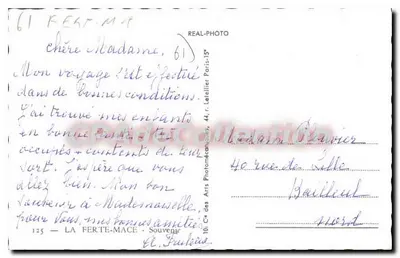 61
REAL-PHOTO
chère Madame. 61)
Mon voyage s'est effectué
dans de bonnes conditions.
J'ai trouvé mes enfants
en bonne santé
occupés + contents de leur
sort. J'espère que vous
allez bien. Mon bon
souvenir à Mademoiselle
pour vous, mes bonnes amitiés
125 - LA FERTE-MACE - Souvenir
10. Cie des Arts Photomécaniques, 44, r. Letellier Paris-15e
Madame
40 rue de Lille
Bailleul
Nord